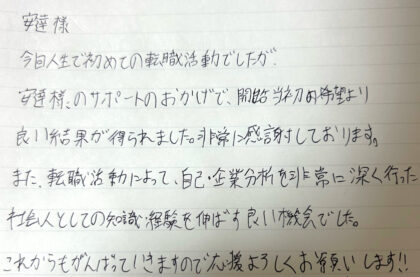 安達様
今回人生で初めての転職活動でしたが、
安達様のサポートのおかげで、開始当初の希望より
良い結果が得られました。非常に感謝しております。
また、転職活動によって、自己・企業分析を非常に深く行った
社会人としての知識・経験を伸ばす良い機会でした。
これからもがんばっていきますので応援よろしくお願いします!!